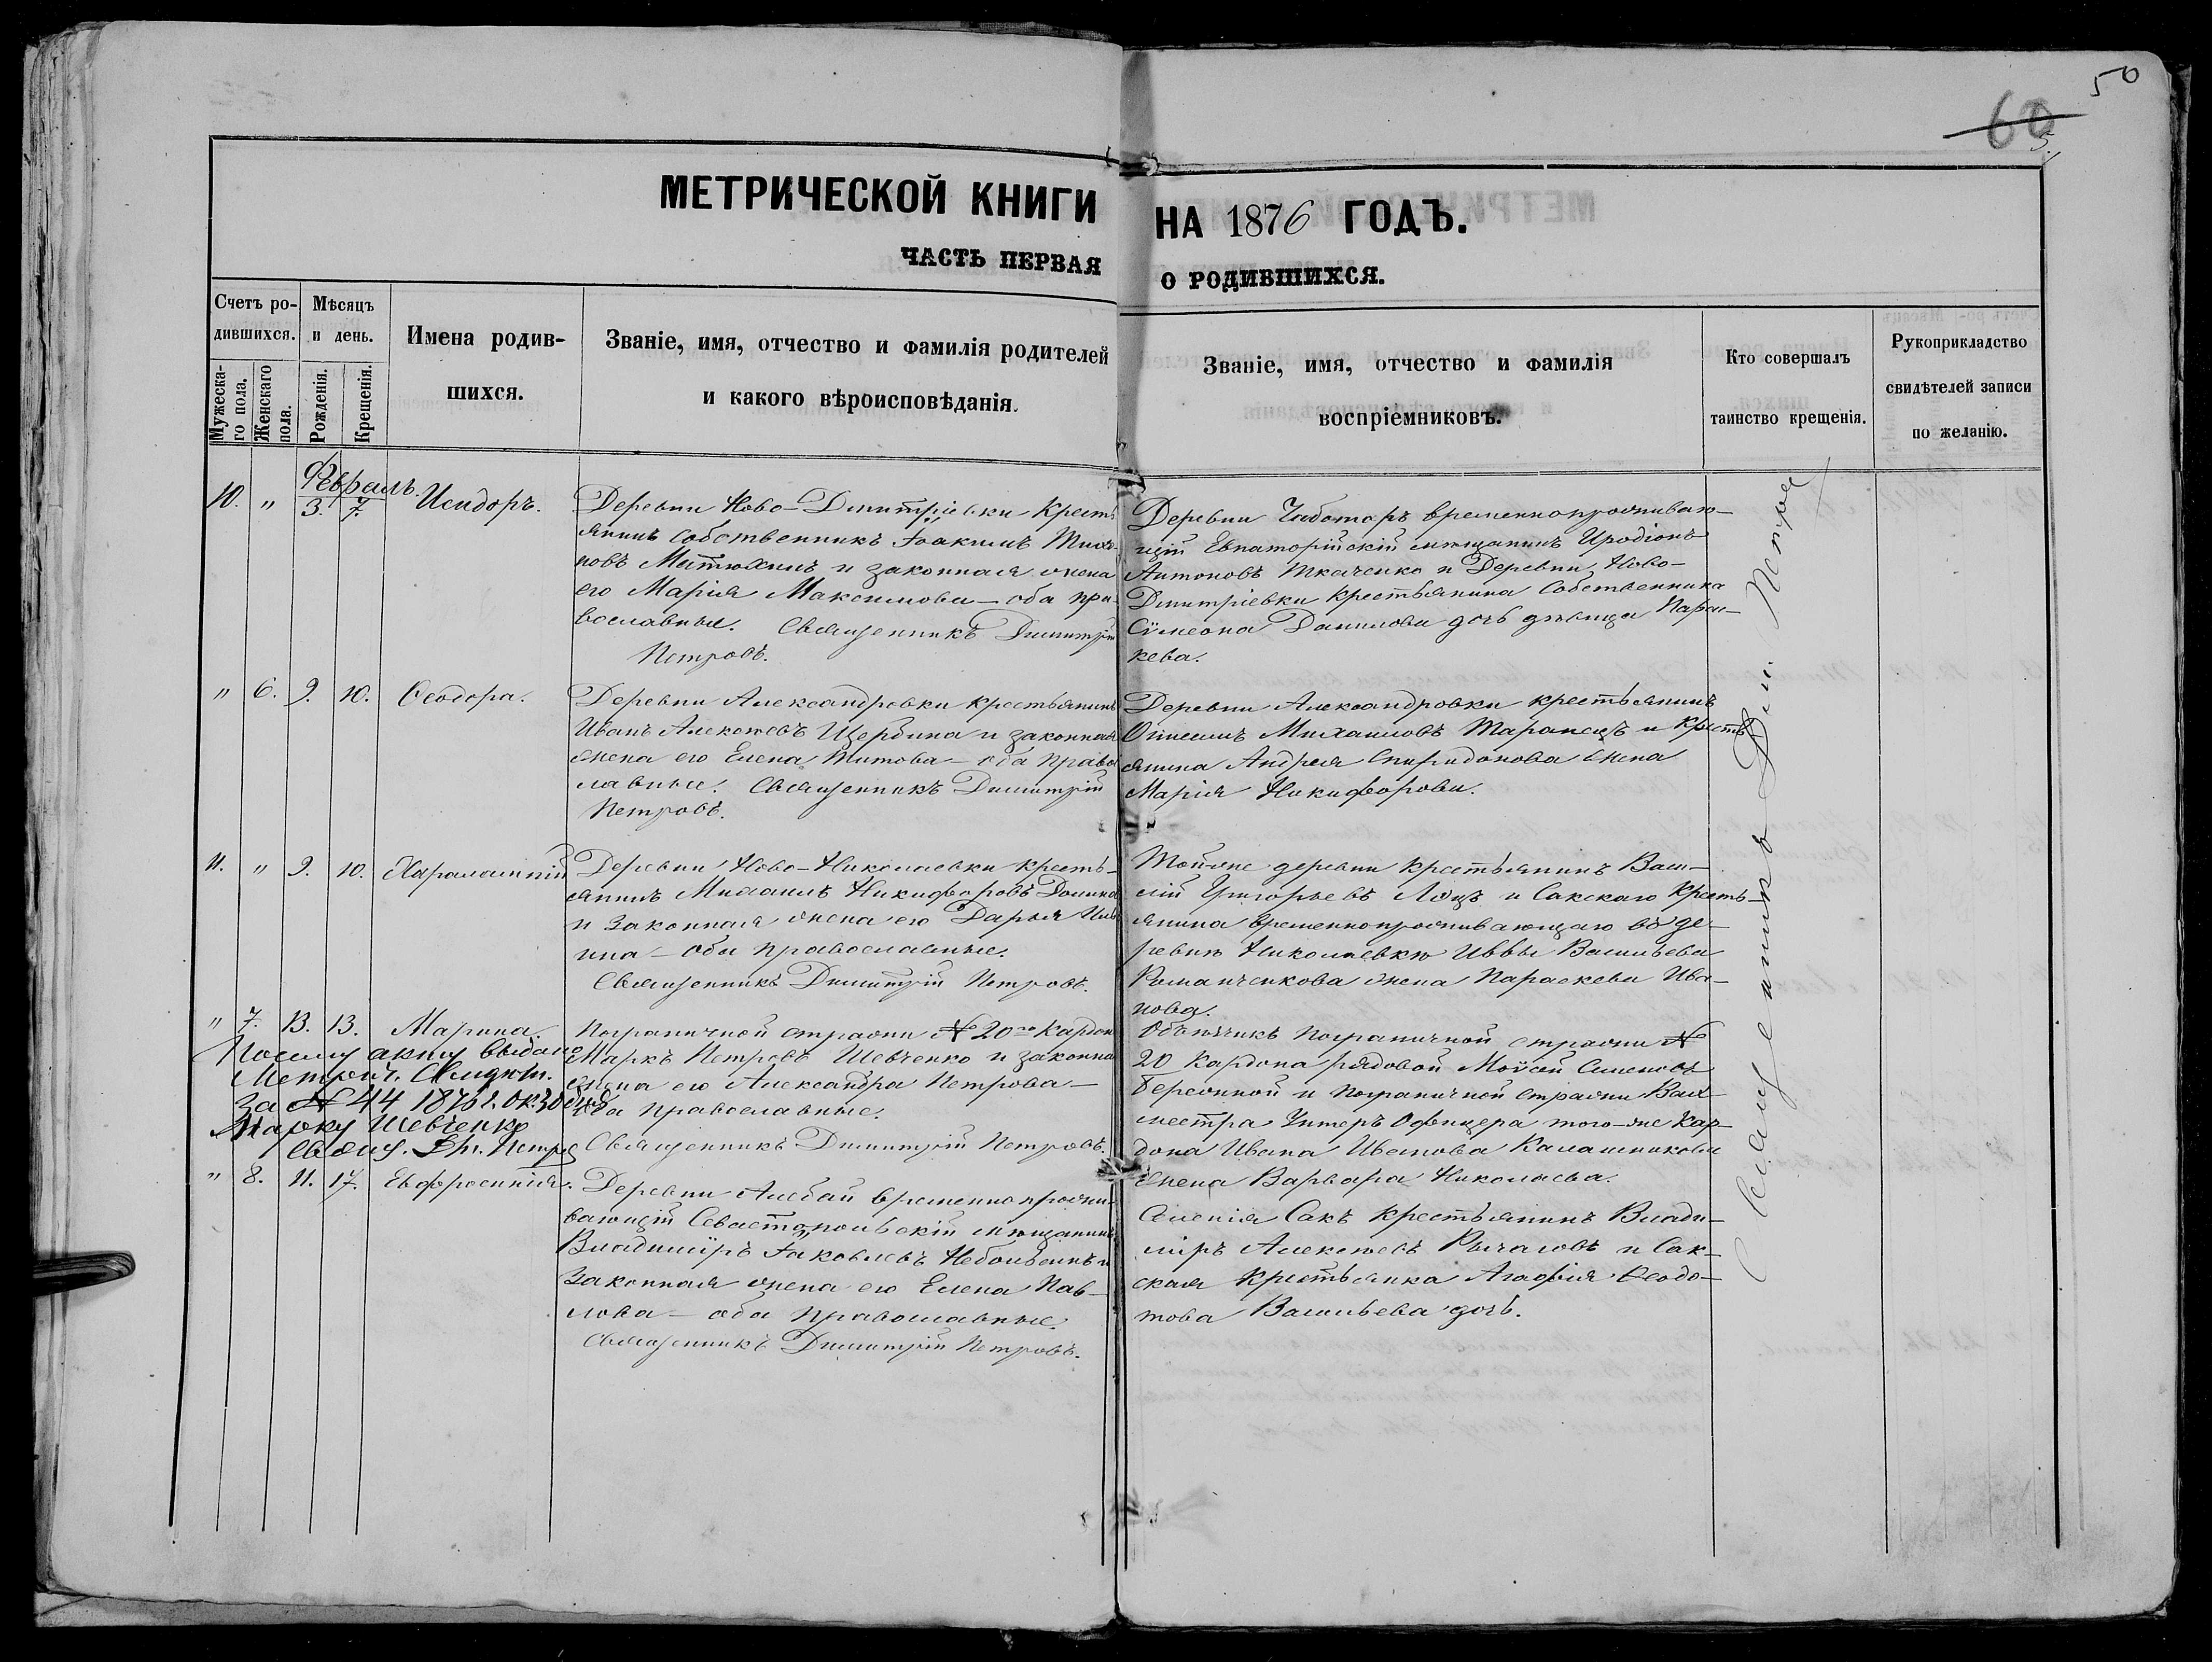 50
60
МЕТРИЧЕСКОЙ КНИГИ НА 1876 ГОДЪ.
ЧАСТЬ ПЕРВАЯ О РОДИВШИХСЯ.
Счетъ ро-
дившихся.
Мужеска-
го пола.
Женскаго
пола.
Мѣсяцъ
и день.
Рожденія.
Крещенія.
Имена родив-
шихся.
Званіе, имя, отчество и фамилія родителей
и какого вѣроисповѣданія.
Званіе, имя, отчество и фамилія
воспріемниковъ.
Кто совершалъ
таинство крещенія.
Рукоприкладство
свидѣтелей записи
по желанію.
Февраль.
10. " 3. 7. Исидоръ.
Деревни Ново-Димитріевки Кресть
янинъ Собственникъ Іоакимъ
новъ Митюхинъ и законная жена
его Марія Максимова - оба пра-
вославные. Священникъ Димитрій
Петровъ.
Деревни Чеботаръ временнопроживаю-
щій Евпаторійскій мѣщанинъ Иродіонъ
Антоновъ Ткаченко и Деревни Ново-
Димитріевки Крестьянина Собственника
Сѵмеона Данилова дочь дѣвица Парас-
кева.
" 6. 9. 10. Ѳеодора.
Деревни Александровки крестьянинъ
Иванъ Алексѣевъ Щербина и законная
жена его Елена Титова - оба право
славные. Священникъ Димитрій
Петровъ.
Деревни Александровки крестьянинъ
Михаиловъ Таранецъ и Кресть
янина Андрея Спиридонова жена
Марія Никифорова.
11. " 9. 10. Харалампій
Деревни Ново-Николаевки кресть-
янинъ Михаилъ Никифоровъ
и Законная жена его Дарья Иль
ина - оба православные.
Священникъ Димитрій Петровъ.
Той-же деревни Крестьянинъ Васи-
лій Григорьевъ и Сакскаго Кресть-
янина временнопроживающаго въ де-
ревнѣ Николаевкѣ Иввы Васильева
Романченкова жена Параскева Ива-
нова.
" 7. 13. 13. Марина.
Посему акту выдано
Метрич. Свидѣт.
за № 44 1876 г. Ок. 30 дня
Марку Шевченко
Свящ. Дм. Петро
Пограничной стражи № 20го Кардон
Маркъ Петровъ Шевченко и законна
жена его Александра Петрова -
оба православные.
Священникъ Димитрій Петровъ.
Объѣзчикъ Пограничной стражи №
20 Кардона рядовой Моѵсей Семеновъ
Бережной и Пограничной стражи Вах-
местра Унтеръ Офицера того-же Кар-
дона Ивана Иванова Калашникова
жена Варвара Николаева.
" 8. 11. 17. Евфросинія.
Деревни Алебай временнопрожи-
вающій Севастопольскій мѣщанинъ
Владиміръ Іаковлевъ и
Законная жена его Елена Пав-
лова - оба православные.
Священникъ Димитрій Петровъ.
Селенія Сакъ Крестьянинъ Влади-
міръ Алексѣевъ Рычаговъ и Сак-
ская Крестьянка Агафія Ѳеодо-
това Васильева дочь.
Священникъ Дим. Петров